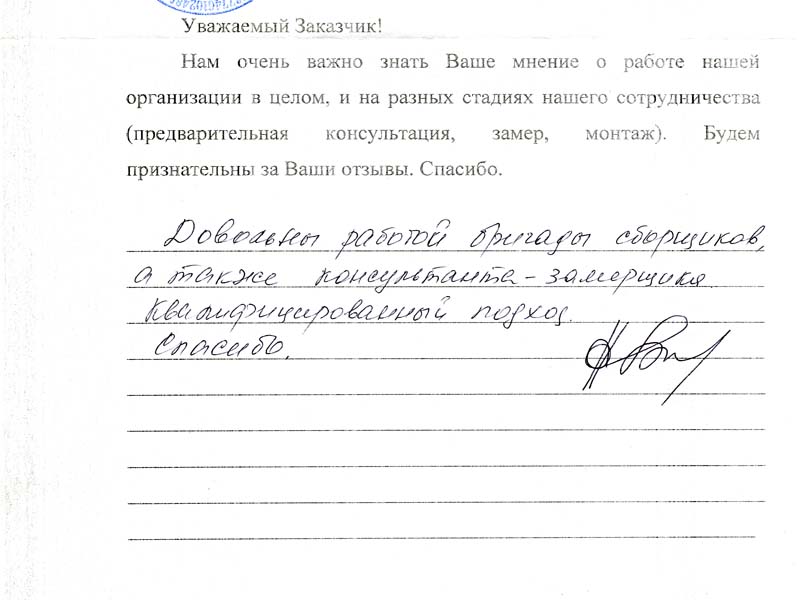 Уважаемый Заказчик!
Нам очень важно знать Ваше мнение о работе нашей
организации в целом, и на разных стадиях нашего сотрудничества
(предварительная консультация, замер, монтаж). Будем
признательны за Ваши отзывы. Спасибо.
Довольны работой бригады сборщиков,
а также консультанта-замерщика.
Квалифицированный подход.
Спасибо.